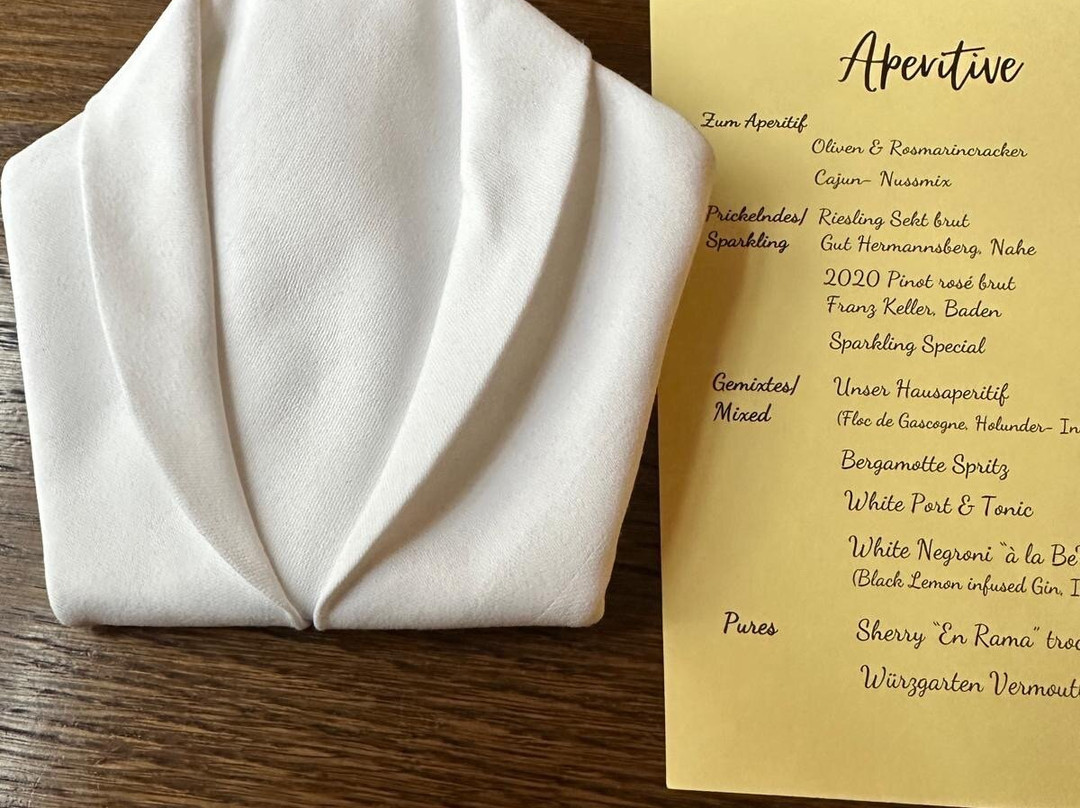 Aperitive
Zum Aperitif
Oliven & Rosmarincracker
Cajun- Nussmix
Prickelndes/ Riesling Sekt brut
Sparkling Gut Hermannsberg, Nahe
2020 Pinot rosé brut
Franz Keller, Baden
Sparkling Special
Gemixtes/ Unser Hausaperitif
Mixed (Floc de Gascogne, Holunder-
Bergamotte Spritz
White Port & Tonic
White Negroni "à la
(Black Lemon infused Gin,
Pures Sherry "En Rama"
Würzgarten Vermouth